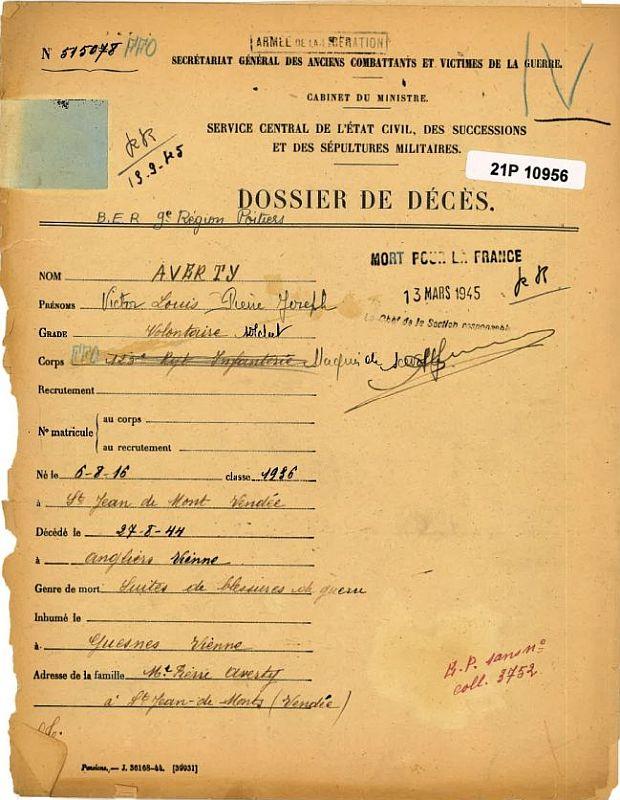 N 515078 FFO
ARMÉE DE LA LIBÉRATION
SECRÉTARIAT GÉNÉRAL DES ANCIENS COMBATTANTS ET VICTIMES DE LA GUERRE.
IV
CABINET DU MINISTRE.
SERVICE CENTRAL DE L'ÉTAT CIVIL, DES SUCCESSIONS
ET DES SÉPULTURES MILITAIRES.
13-9-45
21P 10956
DOSSIER DE DÉCÈS.
B.E.R 9e Région Poitiers
MORT POUR LA FRANCE
13 MARS 1945
Le Chef de la Section responsable
NOM AVERTY
PRÉNOMS Victor Louis Pierre Joseph
GRADE Volontaire soldat
Corps FFO 125e Rgt Infanterie Maquis de
Recrutement
Nº matricule
au corps
au recrutement
Né le 6-8-16 classe 1936
à St Jean de Mont Vendée
Décédé le 27-8-44
à angliers Vienne
Genre de mort Suites de blessures de guerre
Inhumé le
à Guesnes Vienne
Adresse de la famille Mr Pierre Averty
à St Jean-de Monts (Vendée)
B.P. sans nº
coll. 3752
Pensions. — J. 36168-44. [39931]